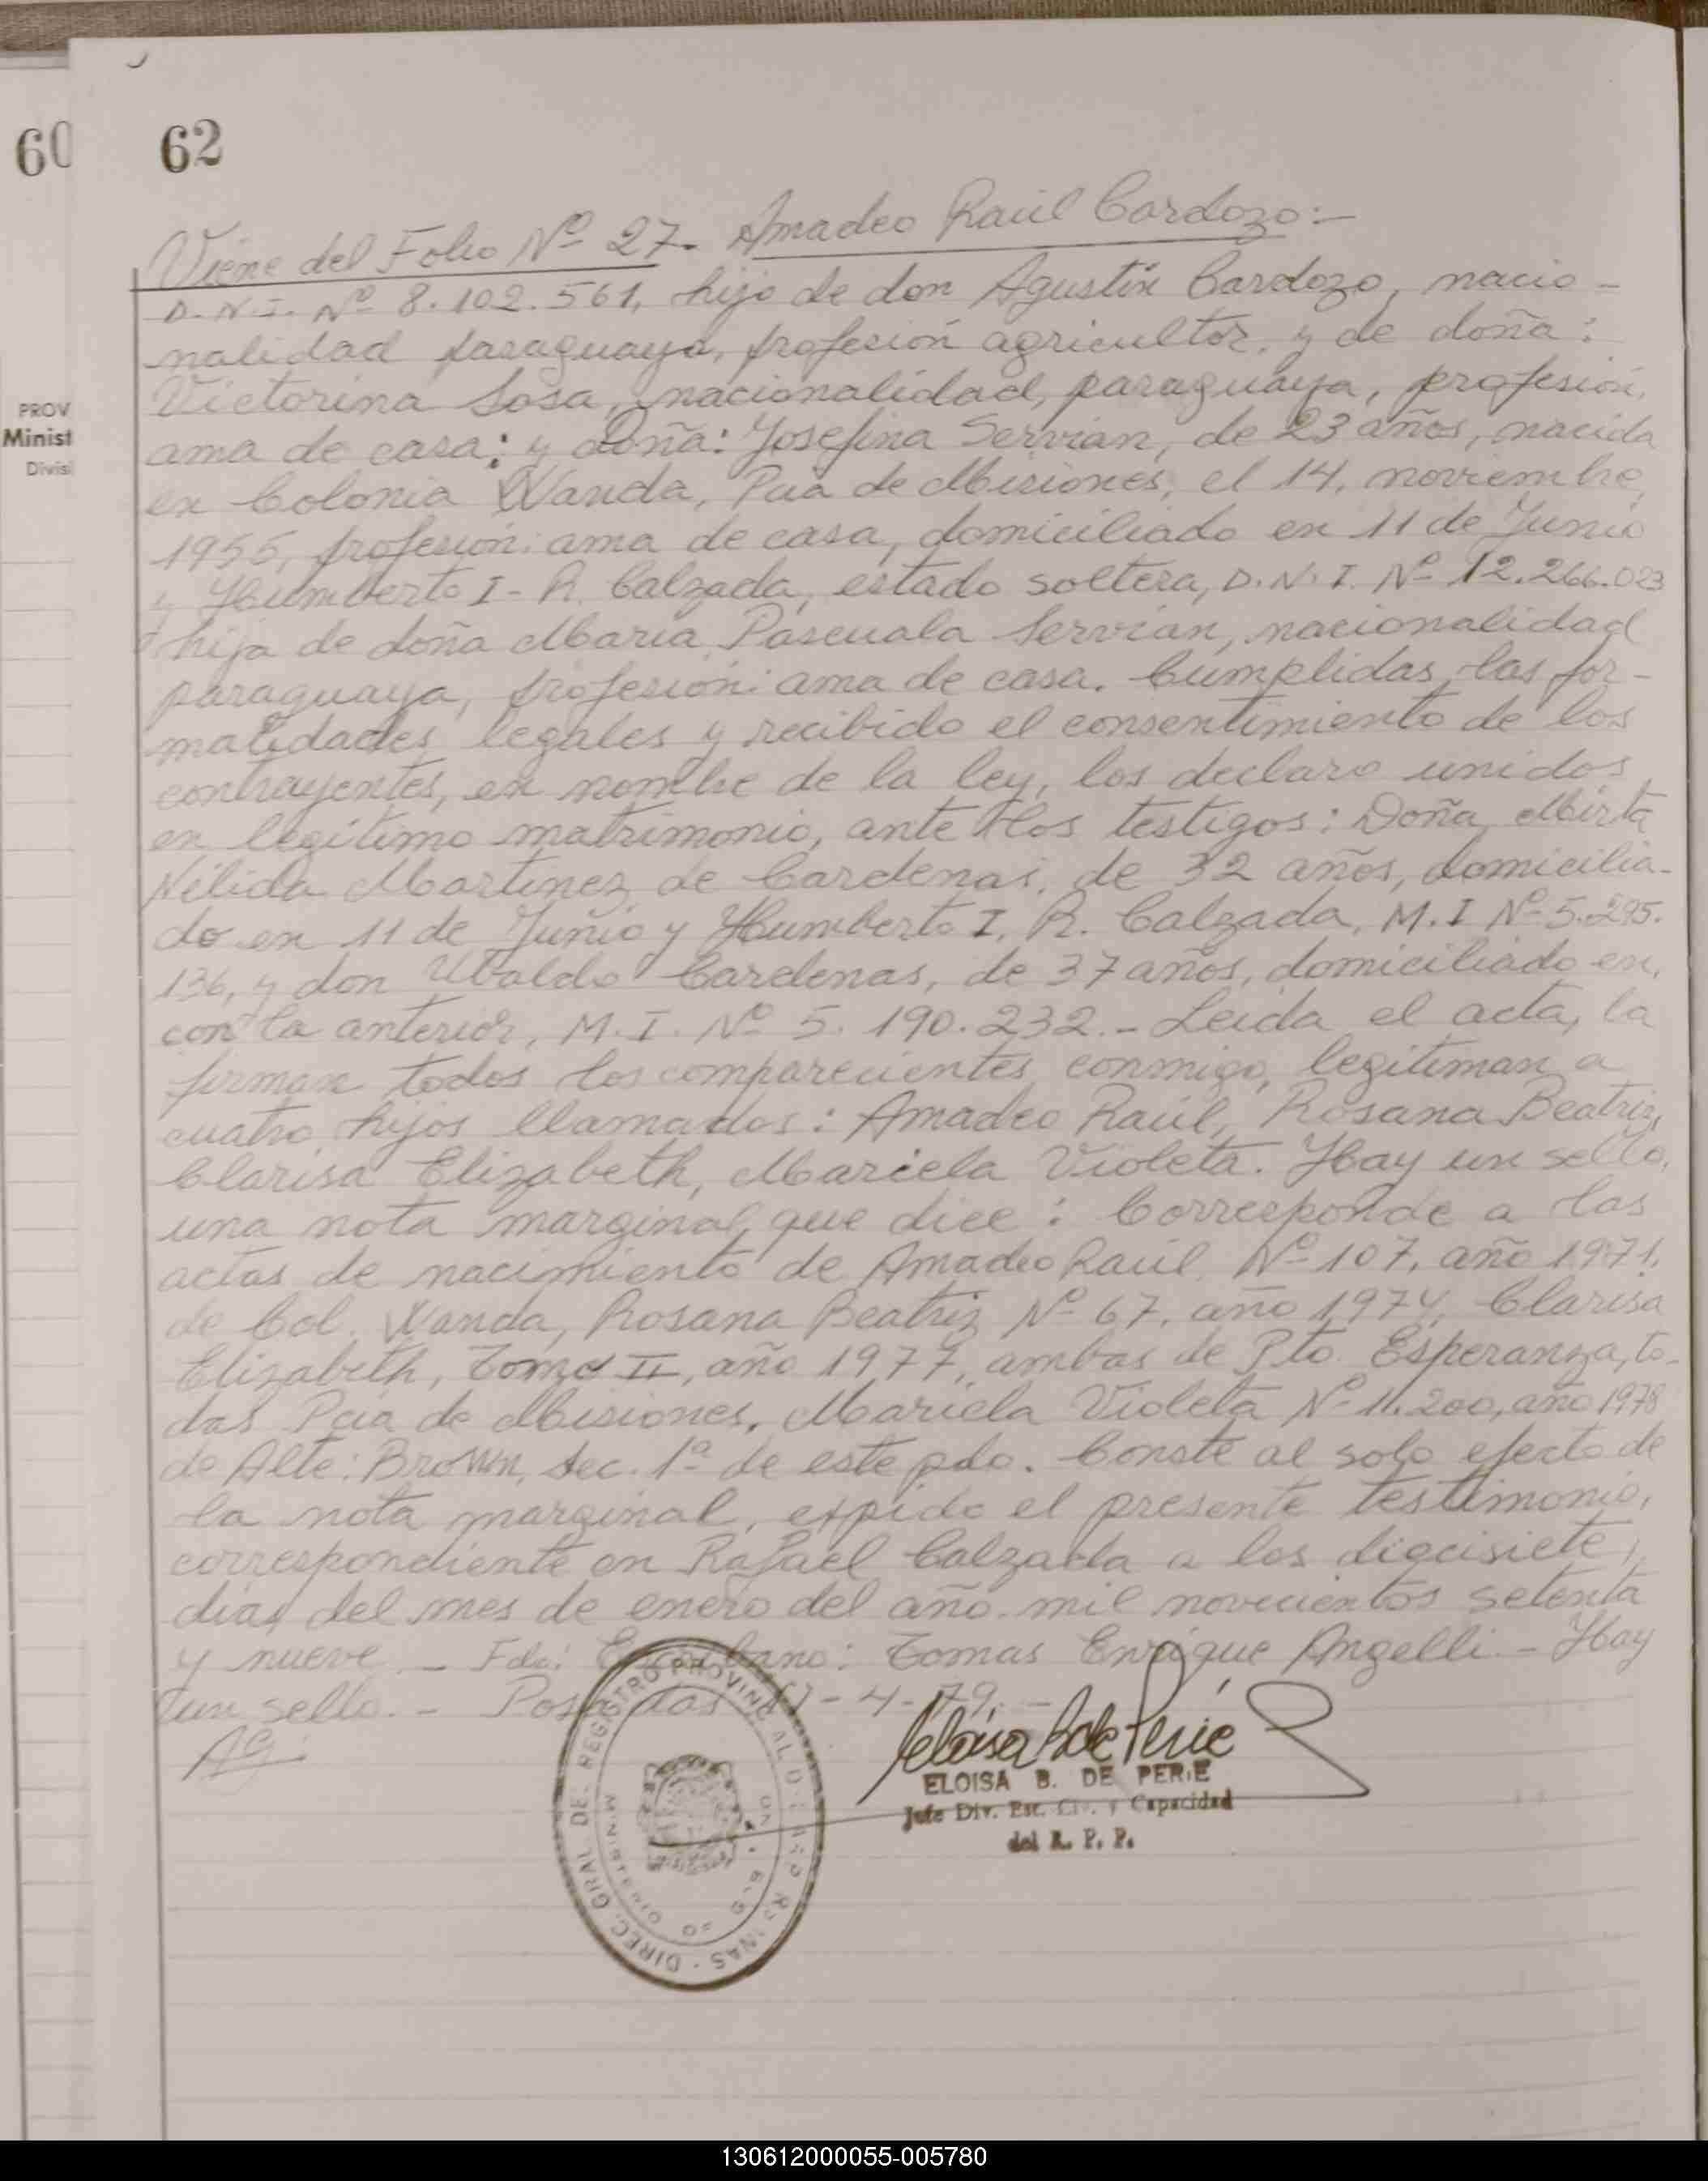 60
62
PROV
Minist
Divisi
Viene del Folio Nº 27. Amadeo Raúl Cardozo:-
D.N.I. Nº 8.102.561, hijo de don Agustín Cardozo, nacio-
nalidad paraguaya, profesión agricultor, y de doña:
Victorina Sosa, nacionalidad, paraguaya, profesión,
ama de casa; y Doña: Josefina Servian, de 23 años, nacida
en Colonia Wanda, Pcia de Misiones, el 14, noviembre,
1955, profesión: ama de casa, domiciliado en 11 de Junio
y Humberto I - R. Calzada, estado soltera, D.N.I. Nº 12.266.023
hija de doña Maria Pascuala Servian, nacionalidad
paraguaya, profesión: ama de casa. Cumplidas las for-
malidades legales y recibido el consentimiento de los
contrayentes, en nombre de la ley, los declaro unidos
en legítimo matrimonio, ante los testigos: Doña Mirta
Nélida Martinez de Cardenas, de 32 años, domicilia-
do en 11 de Junio y Humberto I. R. Calzada, M.I Nº 5.295.
136, y don Ubaldo Cardenas, de 37 años, domiciliado en,
con la anterior, M.I. Nº 5.190.232.- Leida el acta, la
firman todos los comparecientes conmigo, legitiman a
cuatro hijos llamados: Amadeo Raúl, Rosana Beatriz,
Clarisa Elizabeth, Mariela Violeta. Hay un sello,
una nota marginal que dice: Corresponde a las
actas de nacimiento de Amadeo Raúl, Nº 107, año 1971,
de Col. Wanda, Rosana Beatriz Nº 67, año 1974, Clarisa
Elizabeth, Tomo II, año 1977, ambas de Pto. Esperanza, to-
das Pcia de Misiones, Mariela Violeta Nº 11.200, año 1978
de Alte: Brown, sec. 1ª de este pdo. Conste al solo efecto de
la nota marginal, expido el presente testimonio,
correspondiente en Rafael Calzada a los diecisiete,
dias del mes de enero del año mil novecientos setenta
y nueve. - Fdo: Escribano: Tomas Enrique Angelli. - Hay
un sello. - Posadas -4-79. -
AG.
DIREC. GRAL. DEL REGISTRO PROVINCIAL DE PERSONAS
MINISTERIO DE GOBIERNO
Eloisa B de Perie
ELOISA B. DE PERIE
Jefe Div. Est. Civ. y Capacidad
del R. P. P.
130612000055-005780